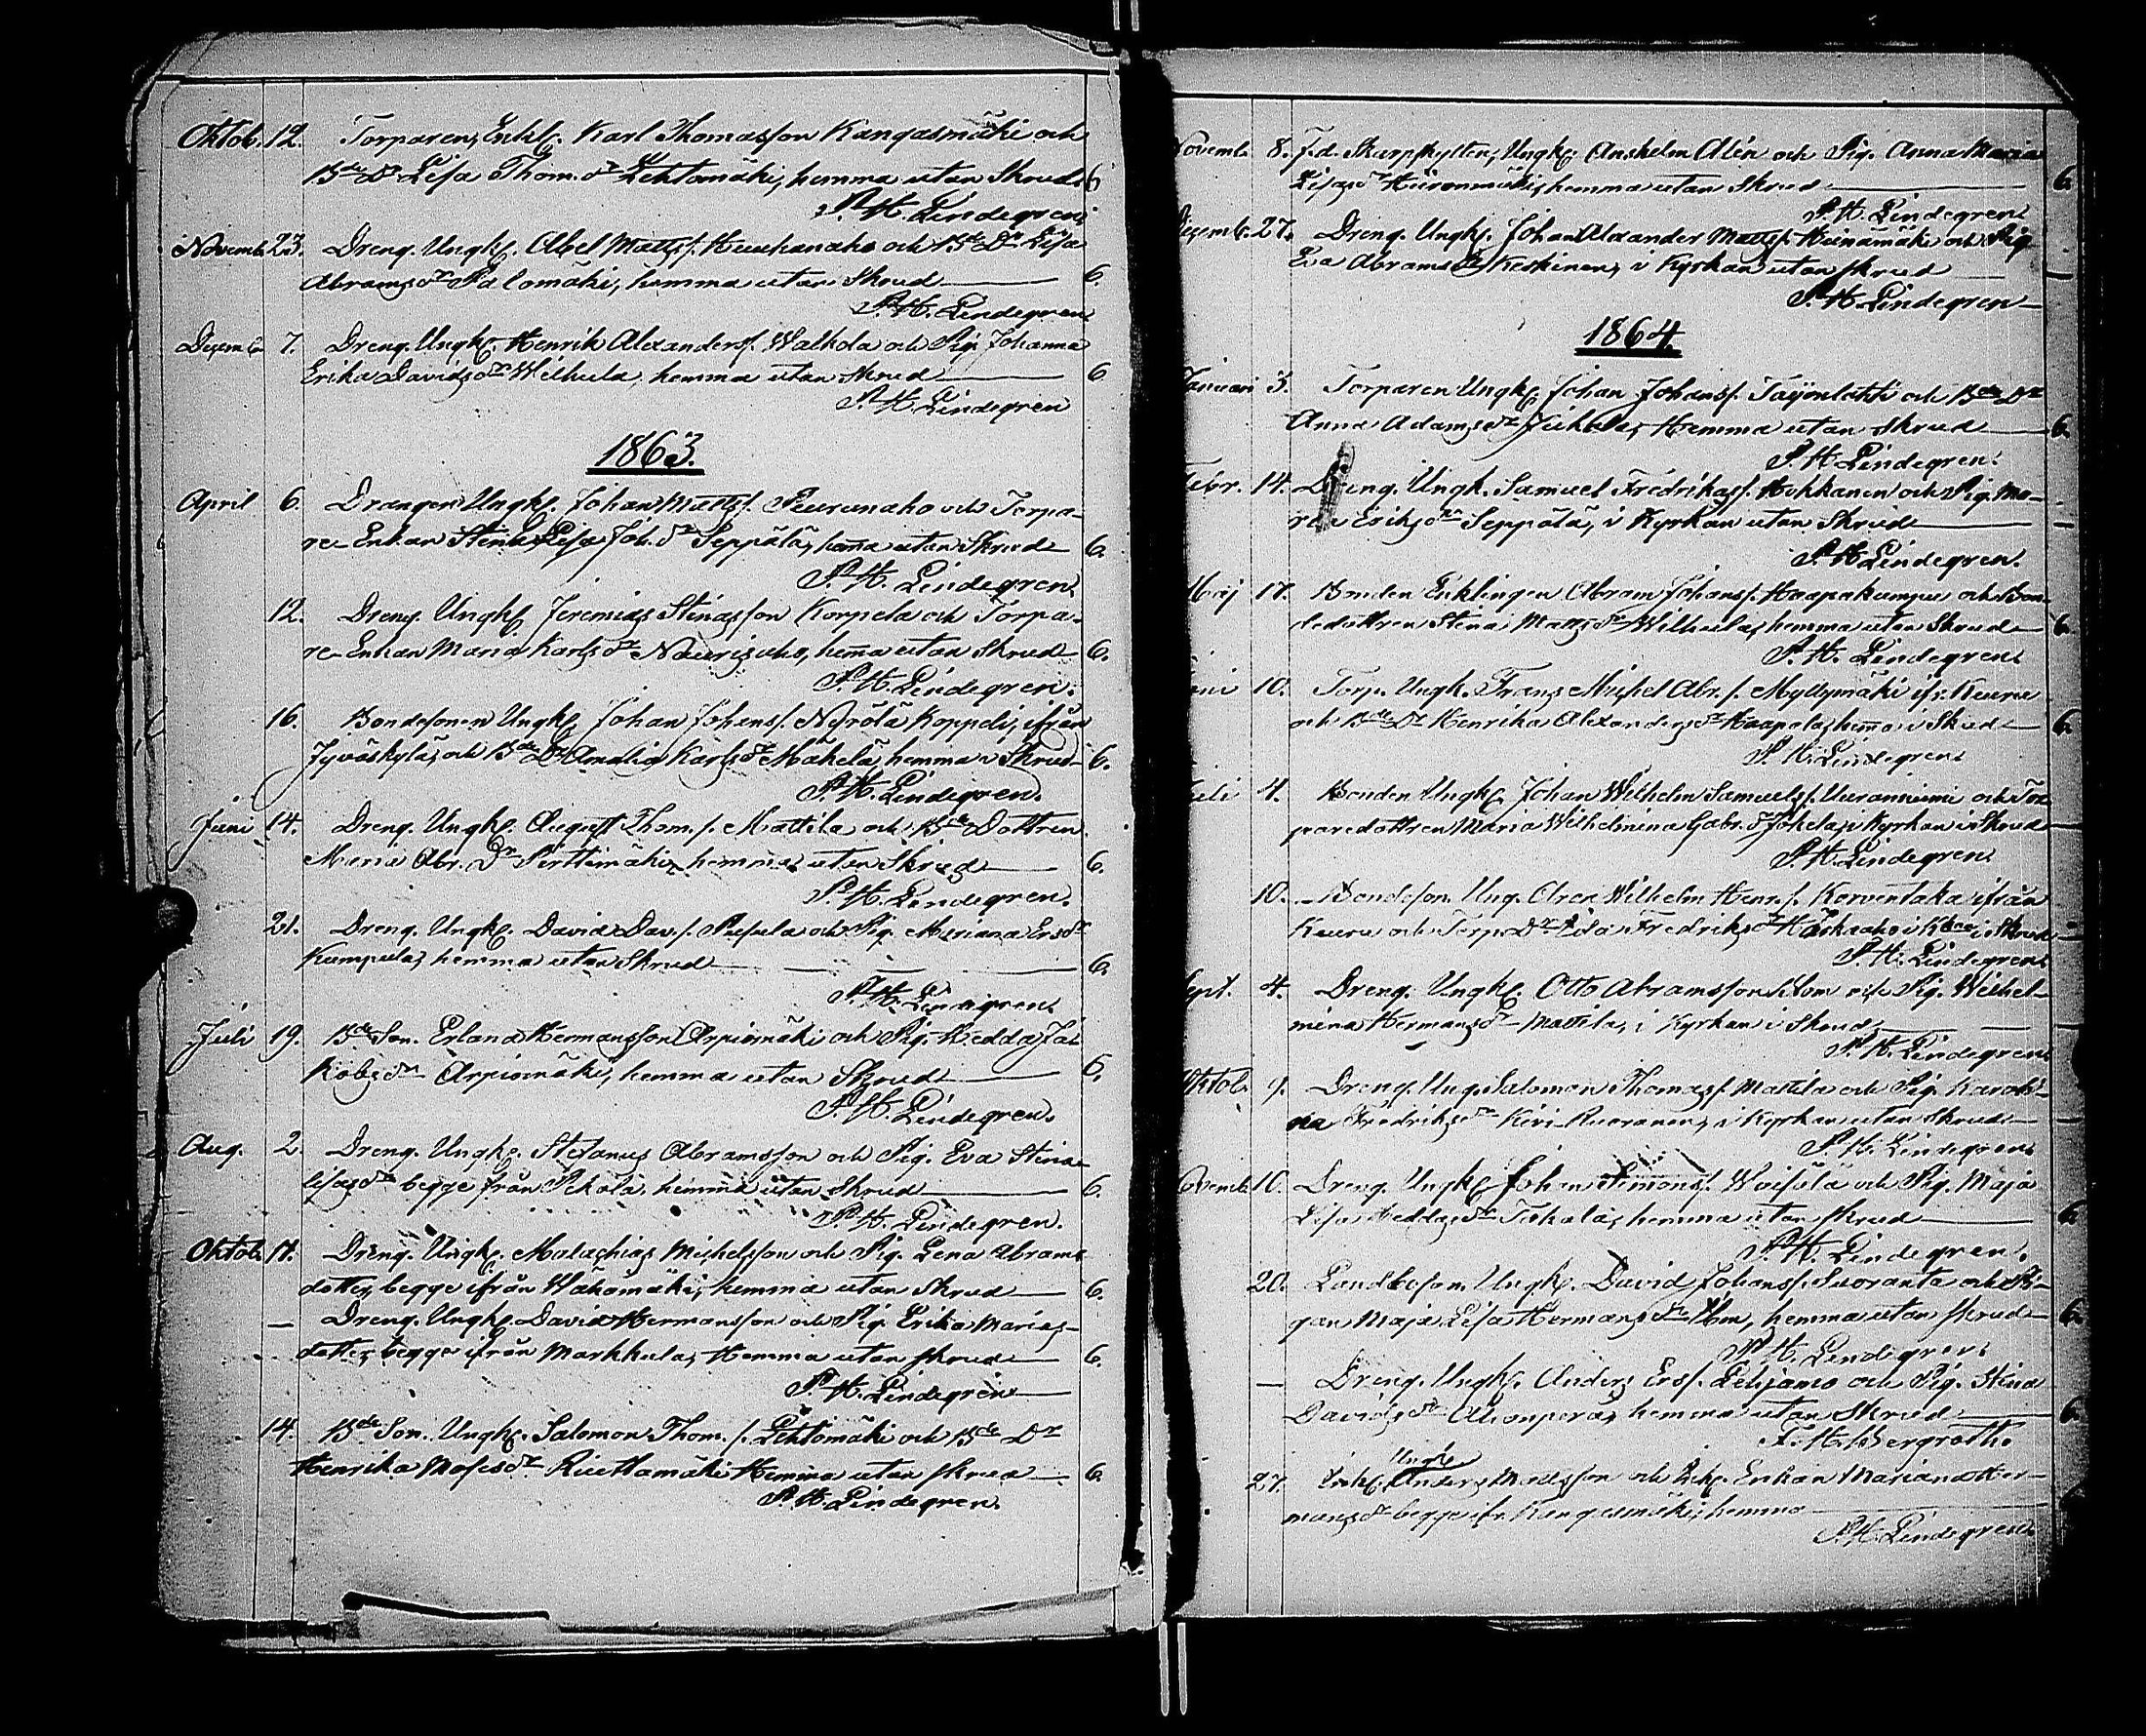 Oktob. 12. Torparen, Enkl. Karl Thomasson Kangasmäki och
Bde Dr Lisa Thom. dr Lehtomäki, hemma utan Skrud 6
P. H. Lindegren.
Novemb. 23. Dreng. Ungk. Abel Mattss. Huuhanaho och Bde Dr Lisa
Abramsdr Palomäki, hemma utan Skrud 6.
P. H. Lindegren.
Dezemb. 7. Dreng. Ungk. Henrik Alexanders. Walkola och Pig. Johanna
Erika Davidsdr Wilhula, hemma utan Skrud 6
P. H. Lindegren
1863.
April 6. Drängen Ungk. Johan Mattss. Peurunaho och Torpa-
re-Enkan Stina Lisa Joh. dr Seppälä, hema utan Skrud 6.
P. H. Lindegren.
12. Dreng. Ungk. Jeremias Stinasson Korpela och Torpa-
re-Enkan Maria Karlsdr Naurisaho, hema utan Skrud 6.
P. H. Lindegren.
16. Bondesonen Ungk. Johan Johanss. Nyrölä Koppeli, ifrån
Jyväskylä, och Bde Dr Amalia Karlsdr Mäkelä hemma i Skrud 6.
P. H. Lindegren.
Juni 14. Dreng. Ungk. August Thom. s. Mattila och Bde Dottren
Maria Abr. Dr Perttimäki, hemma utan Skrud 6.
P. H. Lindegren.
21. Dreng. Ungk. David Dav. s. och Pig. Mariana Ersdr
Kumpula, hemma utan Skrud 6.
P. H. Lindegren.
Juli 19. Bde Son. Erland Hermansson Arpiomäki och Pig. Hedda Ja-
kobsdr Arpiomäki, hemma utan Skrud 6.
P. H. Lindegren.
Aug. 2. Dreng. Ungk. Stefanus Abramsson och Pig. Eva Stina
Lisasdr begge från Pekola, hemma utan Skrud 6.
P. H. Lindegren.
Oktob. 11. Dreng. Ungk. Malachias Michelsson och Pig. Lena Abrams
dotter, begge ifrån Wähämäki, hemma utan Skrud 6.
— Dreng. Ungk. David Hermansson och Pig. Erika Marias-
dotter, begge ifrån Markkula, Hemma utan skrud 6.
P. H. Lindegren
14. Bde Son. Ungk. Salomon Thom. s. Lehtomäki och Bde Dr
Henrika Mosesdr Riuttamäki Hemma utan skrud 6.
P. H. Lindegren.
Novemb. 8. F.d. Skarpskytten, Ungk. Anshelm Alén och Pig. Anna Maria
Lisasdr Hiironmäki, hemma utan Skrud 6.
P. H. Lindegren.
Dezemb. 27. Dreng. Ungk. Johan Alexander Mattss. Heinämäki och Pig.
Eva Abramsdr Keskinen, i Kyrkan utan skrud —
P. H. Lindegren
1864.
Januari 3. Torparen Ungk. Johan Johanss. och Bde Dr
Anna Adamsdr Juhola, Hemma utan Skrud 6.
P. H. Lindegren.
Febr. 14. Dreng. Ungk. Samuel Fredrikss. Hokkanen och Pig. Ma-
ria Eriksdr Seppälä, i Kyrkan utan Skrud —
P. H. Lindegren.
Maij 17. Bonden Enklingen Abram Johanss. Haapakumpu och Bon-
dedottren Stina Mattsdr Wilhula, hemma utan Skrud 6
P. H. Lindegren.
Juni 10. Torp. Ungk. Frans Michel Abr. s. Myllymäki ifr. Keuru
och Bde Dr Henrika Alexandersdr Haapala, hema i Skrud 6.
P. H. Lindegren
Juli 4. Bonden Ungk. Johan Wilhelm Samuelss. Vuranniemi och Tor-
paredottren Maria Wilhelmina Gabr. dr Jokela, i Kyrkan i Skrud —
P. H. Lindegren.
10. Bondeson. Ung. Wilhelm Henr. s. ifrån
Keuru och Torp. Dr Lida Fredriksdr i Skrud —
P. H. Lindegren
Sept. 4. Dreng. Ungk. Otto Abramsson och Pig. Wilhel-
mina Hermansdr Mattila, i Kyrkan i Skrud —
P. H. Lindegren.
Oktob. 9. Dreng. Ung. Salomon Thomass. Mattila och Pig. Karoli-
na Fredriksdr Kivi-Ruoranen, i Kyrkan utan Skrud —
P. H. Lindegren
Novemb. 10. Dreng. Ungk. Johan Simons. Waisälä och Pig. Maja
Lisa Heddasdr Takala, hemma utan skrud 6.
P. H. Lindegren.
20. Landboson. Ungk. David Johanss. Suoranta och Pi-
gan Maja Lisa Hermansdr, hemma utan skrud 6.
P. H. Lindegren.
— Dreng. Ungk. Anders Ers. och Pig. Stina
Davidsdr Ahonperä, hemma utan Skrud 6.
F. H. Bergroth.
Ungk.
27. Enkl. Anders Mattsson och Enkan Mariana Her-
mansdr begge ifr. Kangasmäki, hemma
P. H. Lindegren.